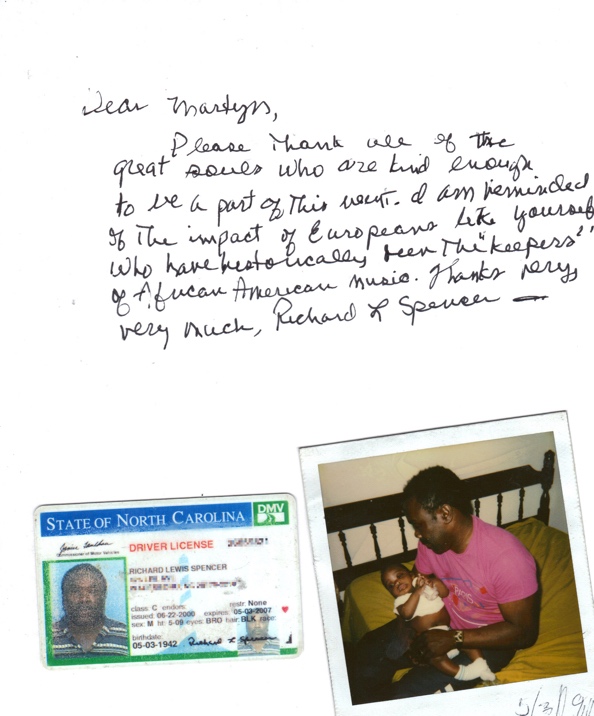 Dear Martyn,
Please Thank all of the
great souls who are kind enough
to be a part of This event. I am reminded
of The impact of Europeans like yourself
who have historically been The "keepers"
of African American music. Thanks very,
very much, Richard L Spencer
STATE OF NORTH CAROLINA DMV
Commissioner of Motor Vehicles
DRIVER LICENSE
RICHARD LEWIS SPENCER
class: C endors: restr: None
issued: 06-22-2000 expires: 05-03-2007
sex: M ht: 5-09 eyes: BRO hair: BLK race:
birthdate:
05-03-1942 Richard L Spencer